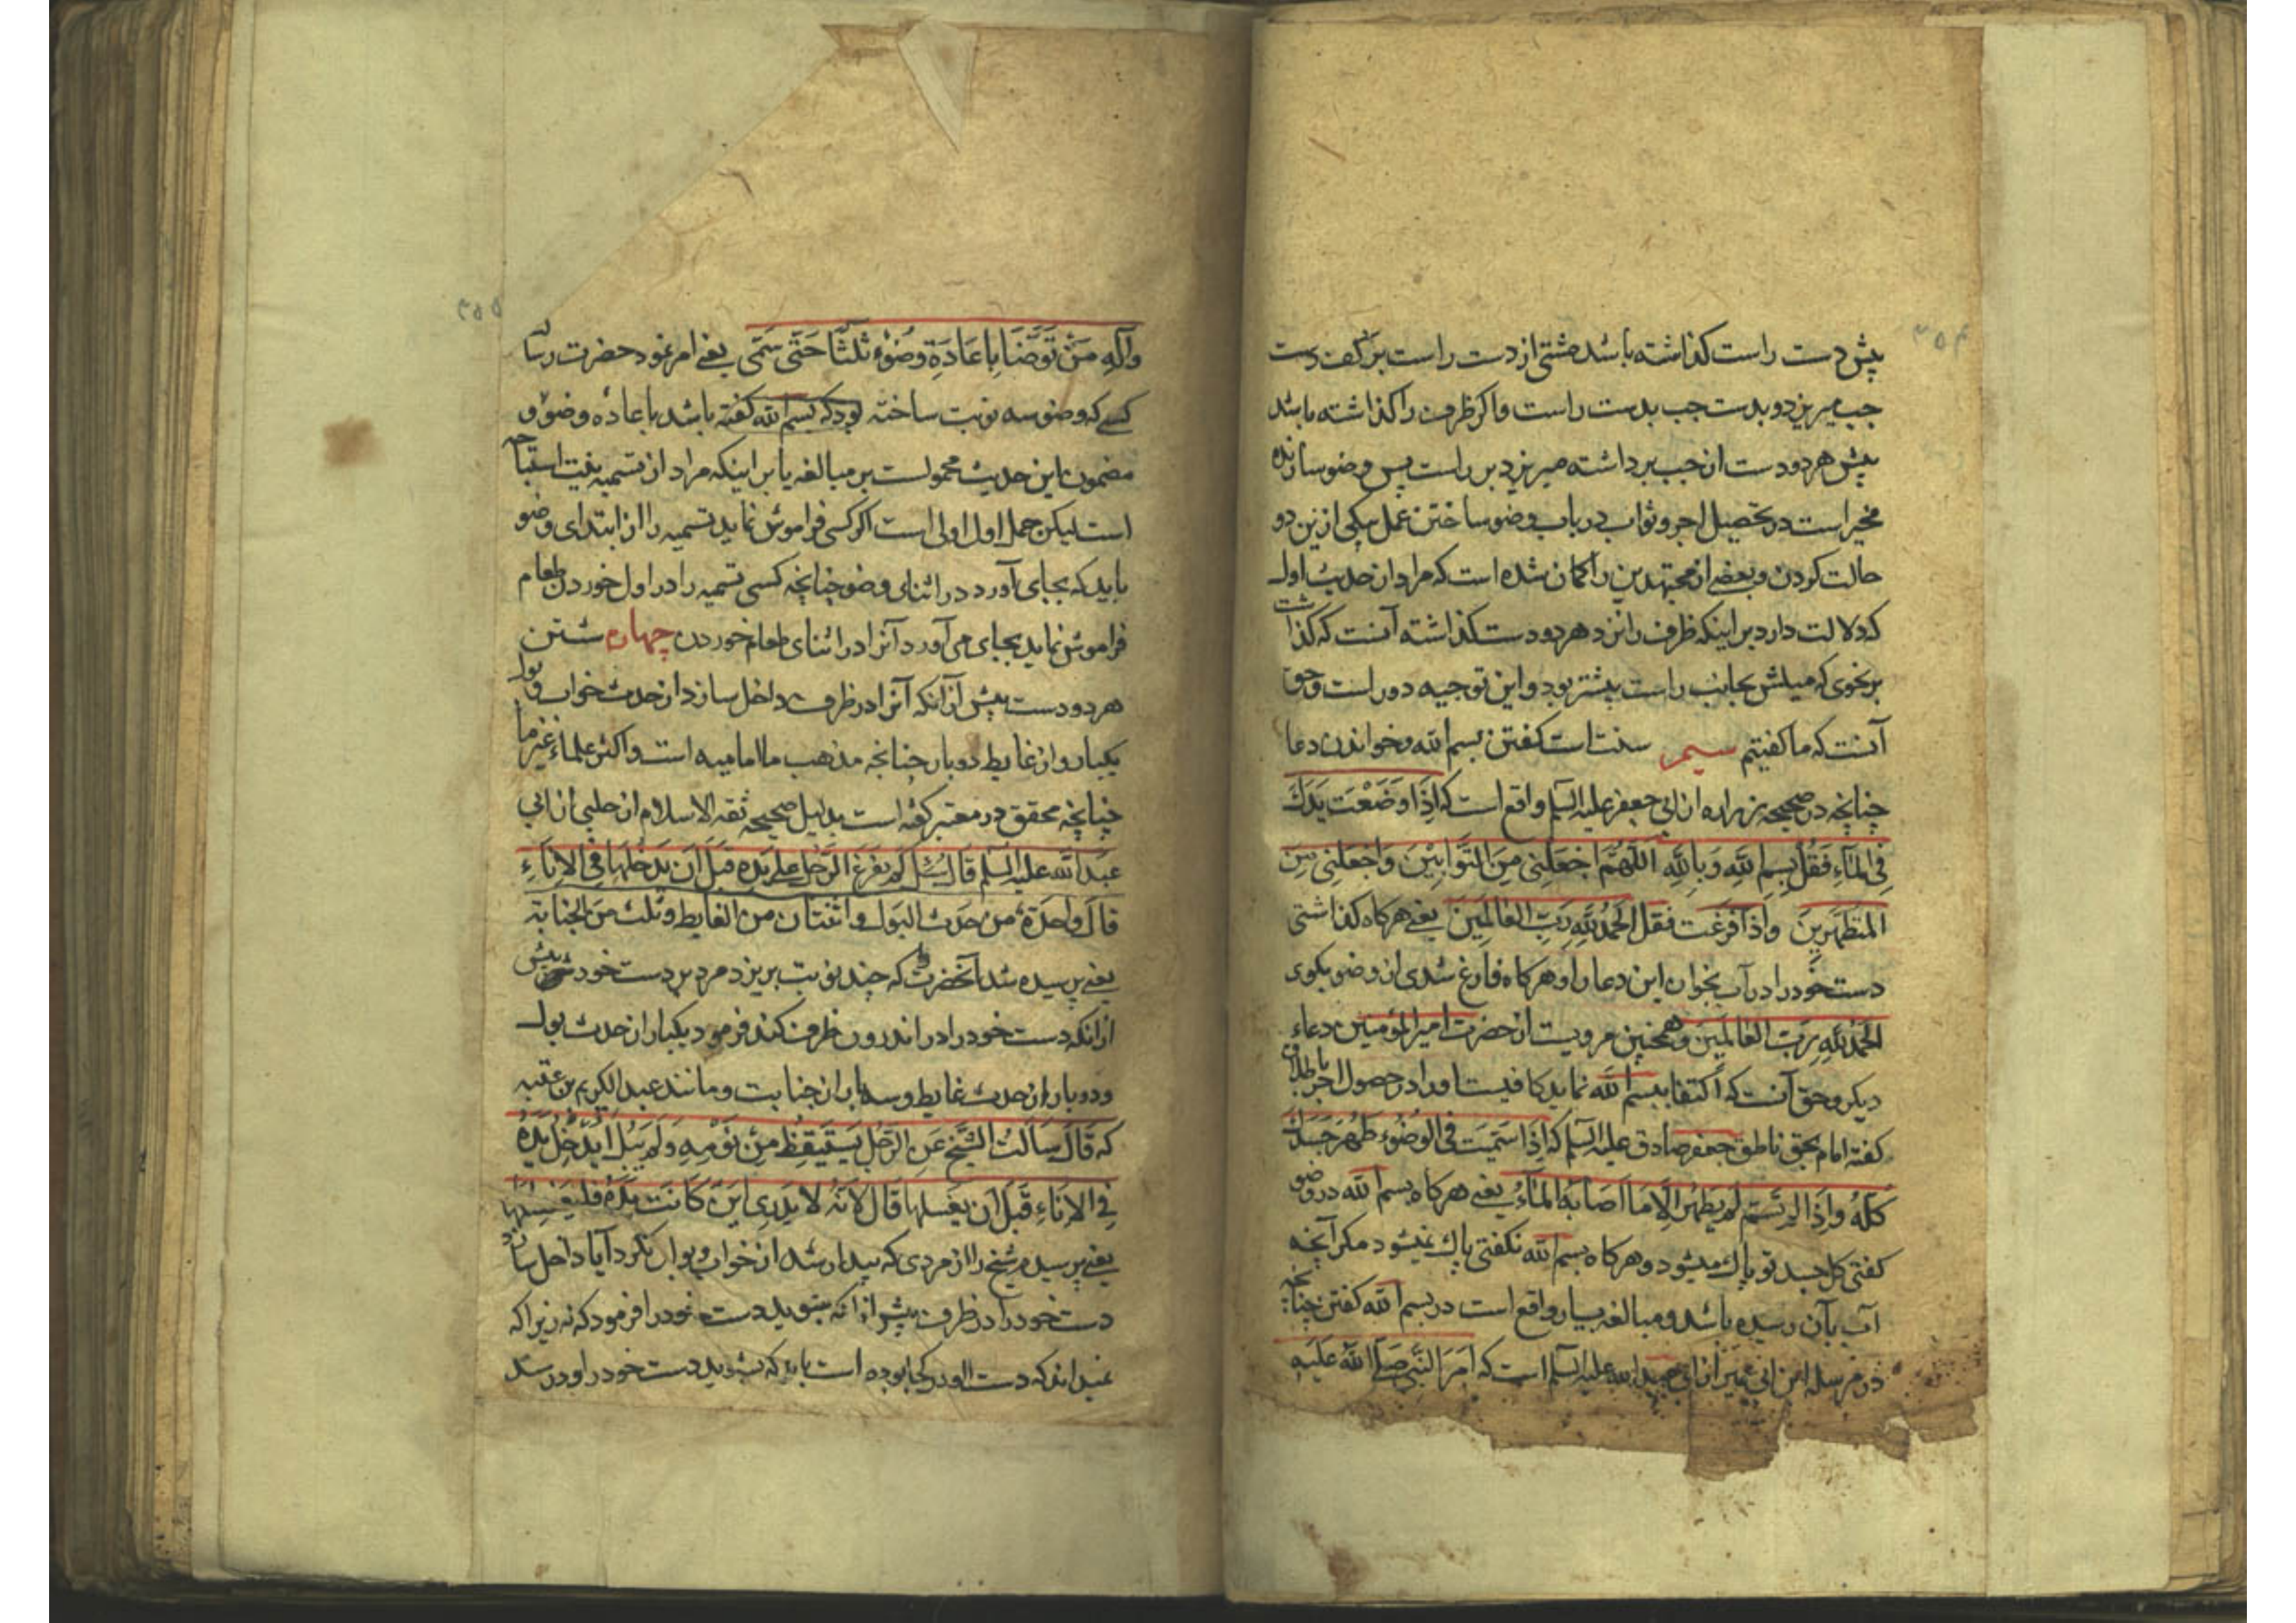 ۲۵۴
پیش دست راست کذاشته باشد مشتی از دست راست بر کف دست
جب میریزد و بدست جب بدست راست واکر ظرف را کذاشته باشد
پیش هر دو دست از جب برداشته میریزد بر راست پس وضو سازنده
مخیر است در تحصیل اجر و ثواب در باب وضو ساختن عمل بیکی ازین دو
حالت کردن و بعضی از مجتهدین را کمان شده است که مراد از حدیث اول
که دلالت دارد بر اینکه ظرف را نزد هر دو دست کذاشته آنست که کذاشت
بر نحوی که میلش بجانب راست بیشتر بود و این توجیه دور است و حق
آنست که ما کفتیم سیم سنت است کفتن بسم الله و خواندن دعا
چنانچه در صحیحه زراره از ابی جعفر علیه السلم واقع است که اِذَا وَضَعْتَ یَدَكَ
فِی المَاءِ فَقُل بِسمِ اللّٰهِ وَبِاللّٰهِ اللّٰهُمَّ اجْعَلنِی مِنَ التَّوابِیْنَ وَاجْعَلنِی مِنَ
المُتَطَهِّرِینَ وَاِذَا فَرَغْتَ فَقُل الحَمْدُ لِلّٰهِ رَبِّ العَالَمِینَ یعنی هر کاه کذاشتی
دست خود را در آب بخوان این دعا را و هر کاه فارغ شدی از وضو بکوی
الحَمْدُ لِلّٰهِ رَبِّ العَالَمِینَ و همچنین مرویست از حضرت امیر المؤمنین دعاء
دیکر و حق آنست که اکتفا ببسم الله نماید کافیست او را در حصول اجر
کفته امام بحق ناطق جعفر صادق علیه السلم که اِذَا سَمَّیتَ فِی الوُضُوءِ طَهُرَ جَسَدُكَ
کُلُّهُ وَاِذَا لَم تُسَمِّ لَم یَطْهُر اِلَّا مَا اَصَابَهُ المَاءُ یعنی هر کاه بسم الله در وضو
کفتی کل جسد تو پاك میشود و هر کاه بسم الله نکفتی پاك نمیشود مکر آنچه
آب بآن رسیده باشد و مبالغه بسیار واقع است در بسم الله کفتن چنانچه
در مرسله ابن ابی عمیر از ابی عبد الله علیه السلم است که اَمَرَ النَّبِی صَلَّی اللّٰهُ عَلَیهِ
۲۵۵
وَآلِهِ مَنْ تَوَضَّأَ بِاِعَادَةِ وُضُوءٍ ثَلٰثًا حَتّٰی سَمّٰی یعنی امر نمود حضرت رسا
کسی که وضو سه نوبت ساخته بود که بسم الله کفته باشد باعاده وضو و
مضمون این حدیث محمولست بر مبالغه یا بر اینکه مراد از تسمیه نیت استباحه
است لیکن حمل اول اولی است اکر کسی فراموش نماید تسمیه را از ابتدای وضو
باید که بجای آورد در اثنای وضو چنانچه کسی تسمیه را در اول خوردن طعام
فراموش نماید بجای می آورد آنرا در اثنای طعام خوردن چهارم شستن
هر دو دست پیش از آنکه آنرا در ظرف داخل سازد از حدث خواب و بول
یکبار و از غایط دو بار چنانچه مذهب ما امامیه است و اکثر علماء غیر ما
چنانچه محقق در معتبر کفته است بدلیل صحیحه ثقه الاسلام از حلبی از ابی
عبد الله علیه السلم قال سُئل کم یفرغ الرجل علی یده قبل ان یدخلها فی الاِنَاءِ
قال واحدة من حدث البول و اثنتان من الغایط وثلث من الجنابة
یعنی پرسیده شد آنحضرت که چند نوبت بریزد مرد بر دست خود پیش
از آنکه دست خود را در اندرون ظرف کند فرمود یکبار از حدث بول
و دو بار از حدث غایط و سه بار از جنابت و مانند عبد الکریم بن عتبه
که قَالَ سَاَلتُ الشَّیخَ عَنِ الرَّجُلِ یَستَیقِظُ مِن نَومِهِ وَلَم یَبُل اَیُدخِلُ یَدَهُ
فِی الاِنَاءِ قَبلَ اَن یَغسِلَهَا قَالَ لَا لِاَنَّهُ لَا یَدرِی اَینَ کَانَت یَدُهُ فَلیَغسِلهَا
یعنی پرسیدم شیخ را از مردی که بیدار شد از خواب و بول نکرد آیا داخل سازد
دست خود را در ظرف پیش از آنکه بشوید دست خود را فرمود که نه زیرا که
نمیداند که دست او در کجا بوده است باید که بشوید دست خود را و در سند